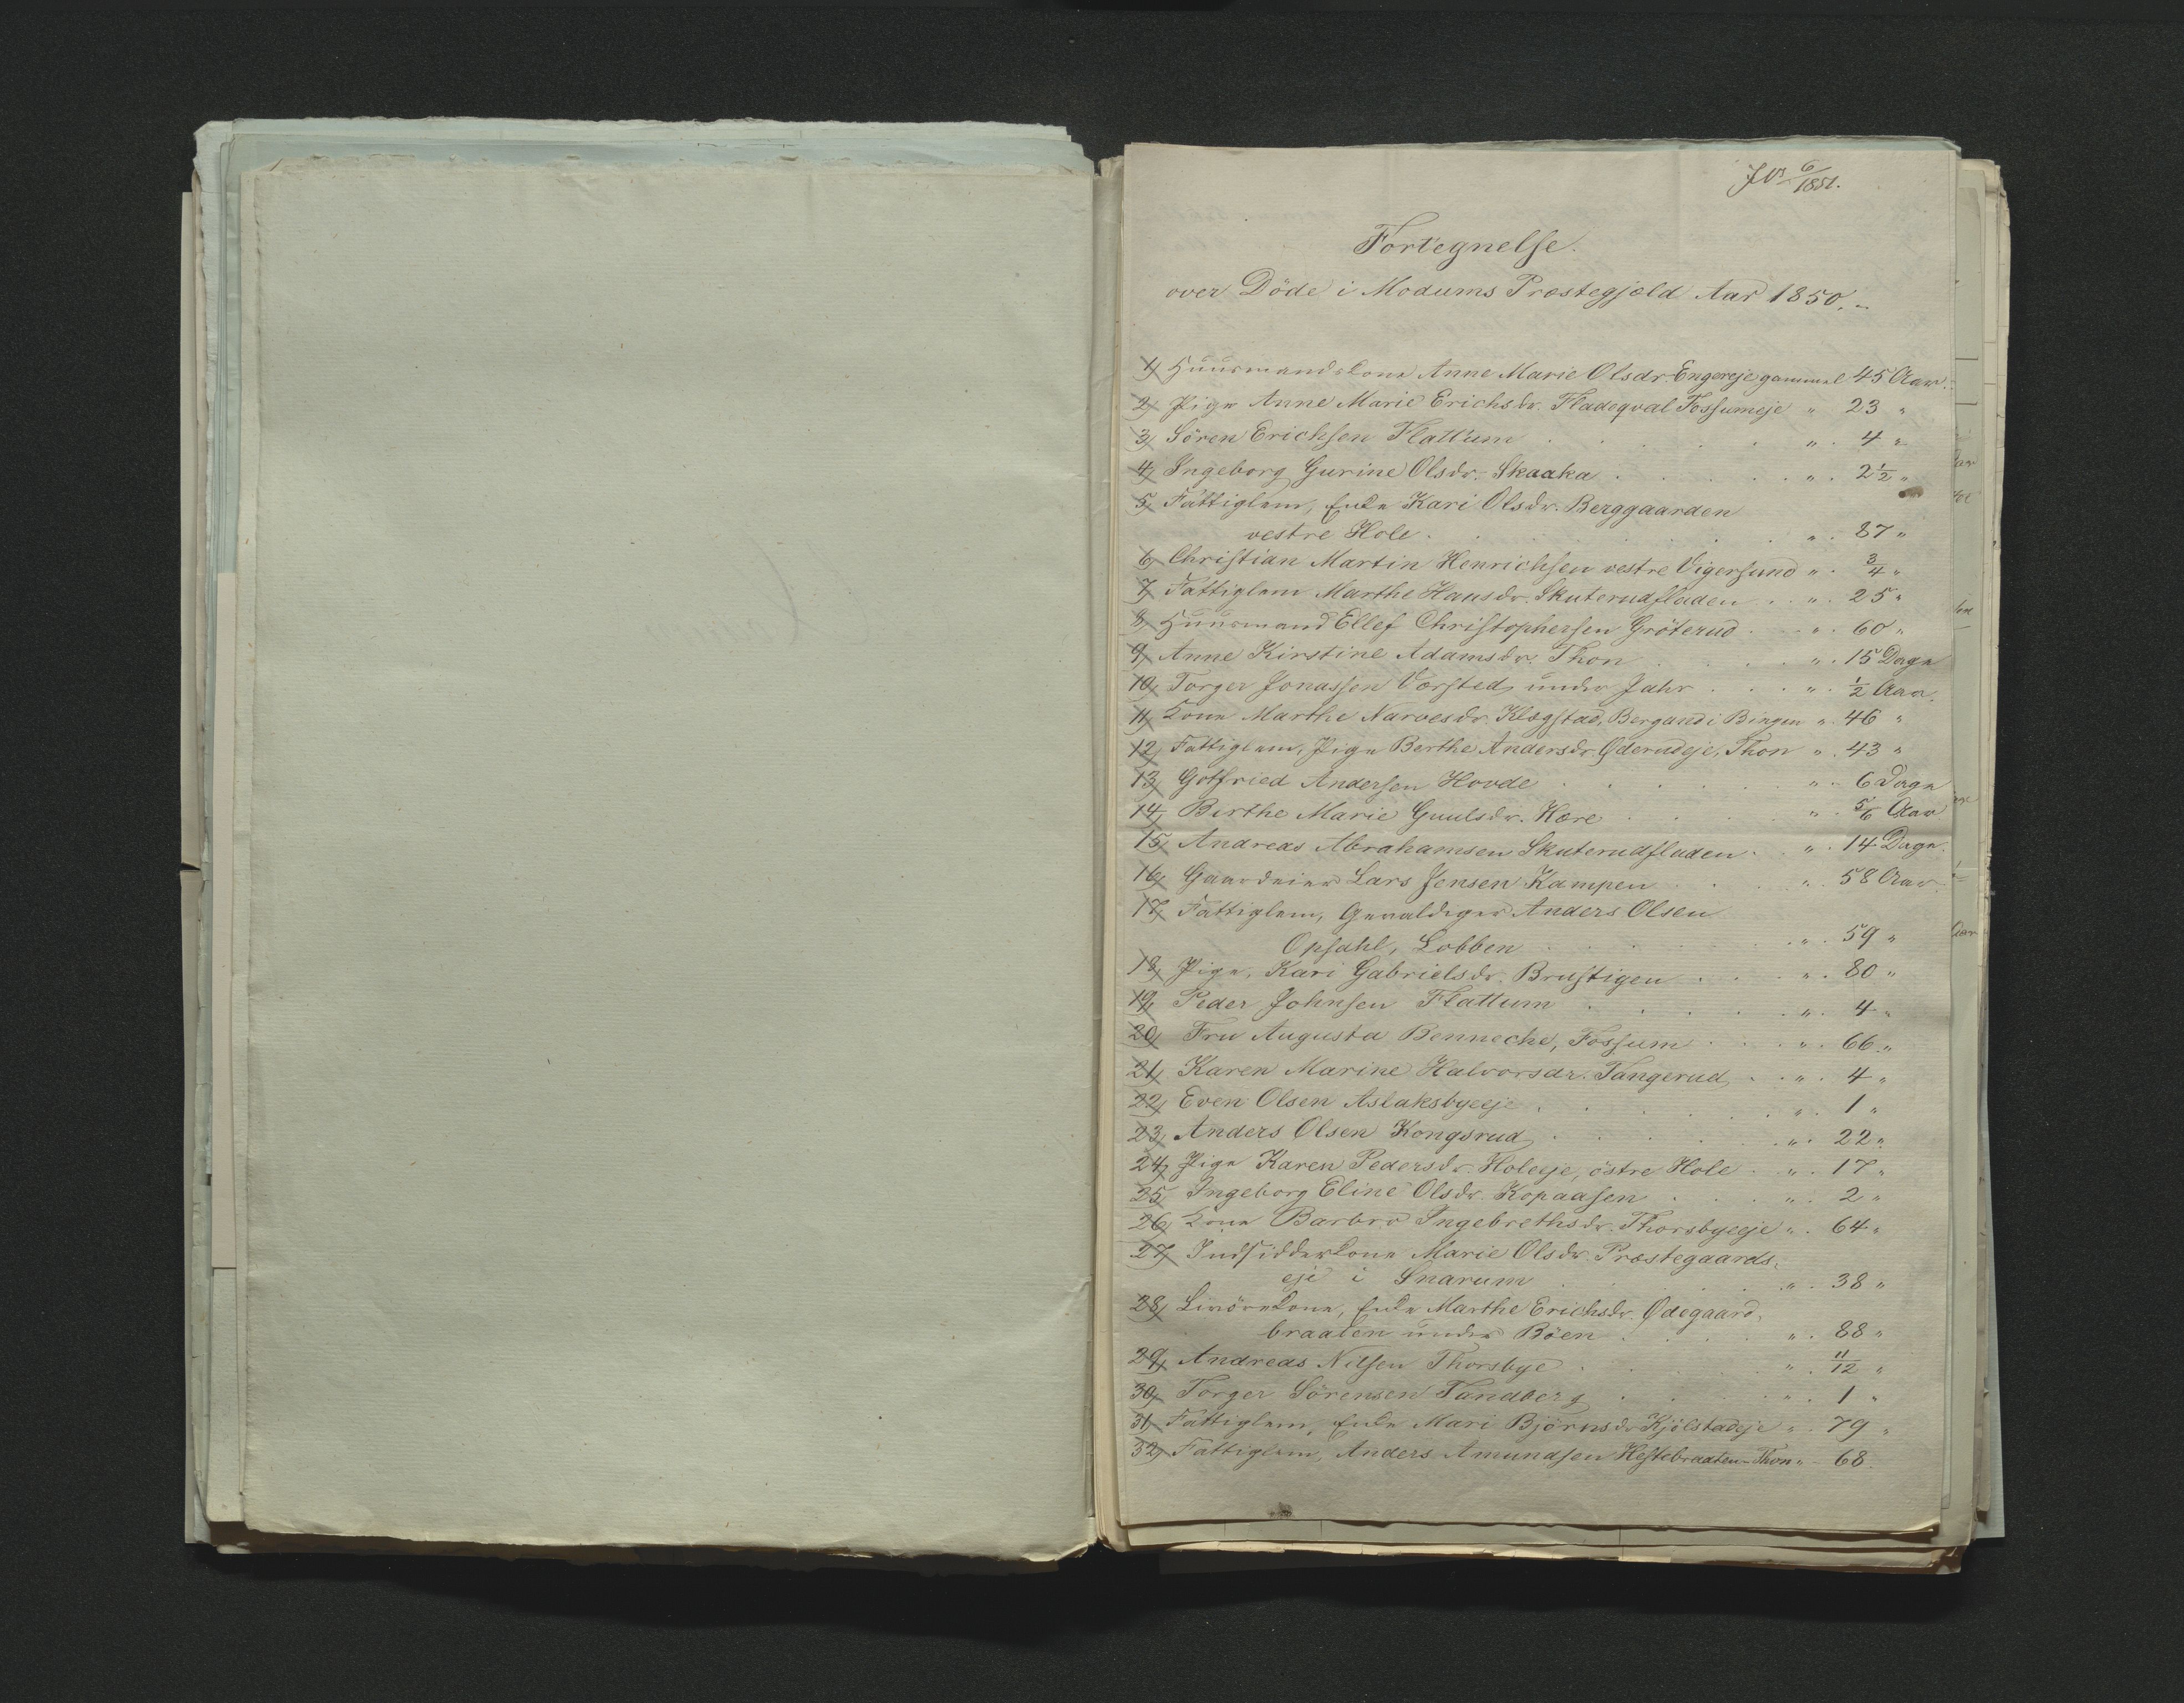 JNo 6/1851.
Fortegnelse.
over Döde i Modums Præstegjæld Aar 1850. –
1, Huusmandskone Anne Marie Olsdr. Engereje gammel 45 Aar.
2, Pige Anne Marie Erichsdr. Fladeqval Fossumeje " 23 "
3, Sören Erichsen Flattum . . . " . 4 "
4, Ingeborg Gurine Olsdr. Skaaka . . . " . 2½ "
5, Fattiglem, Enke Kari Olsdr. Berggaarden
vestre Hole . . . " . 87 "
6, Christian Martin Henrichsen vestre Vigersund " . ¾ "
7, Fattiglem Marthe Hansdr. Skuterudfladen . . " . 25 "
8, Huusmand Ellef Christophersen Gröterud . . " . 60 "
9, Anne Kirstine Adamsdr. Thon . . . " . 15 Dage
10, Torger Jonassen Vorsted under Jahr . . . " . ½ Aar.
11, Kone Marthe Narvesdr. Klægstad, Bergand i Bingen " . 46 "
12, Fattiglem, Pige Berthe Andersdr. Öderudeje, Thon " . 43 "
13, Gotfried Andersen Hovde . . . " . 6 Dage
14, Birthe Marie Guulsdr. Hære . . . " . 5/6 Aar
15, Andreas Abrahamsen Skuterudfladen . . " . 14 Dage.
16, Gaardeier Lars Jensen Kampen . . . " . 58 Aar.
17, Fattiglem, Gevaldiger Anders Olsen
Opsahl, Lobben . . . " . 59 "
18, Pige, Kari Gabrielsdr. Brustigen . . . " . 80 "
19, Peder Johnsen Flattum . . . " . 4 "
20, Fru Augusta Benneche, Fossum . . . " . 66 "
21, Karen Marine Halvorsdr. Tangerud . . " . 4 "
22, Even Olsen Aslaksbyeeje . . . " . 1 "
23, Anders Olsen Kongsrud . . . " . 22 "
24, Pige Karen Pedersdr. Holeeje, östre Hole . " . 17 "
25, Ingeborg Eline Olsdr. Kopaasen . . . " . 2 "
26, Kone Barbro Ingebrethsdr. Thorsbyeeje " . 64 "
27, Indsidderkone Marie Olsdr. Præstegaards-
eje i Snarum . . . " . 38 "
28, Enke Marthe Erichsdr. Ödegaard-
braaten under Böen . . . " . 88 "
29, Andreas Nilsen Thorsbye . . . " . 11/12 "
30, Torger Sörensen Tandberg . . . " . 1 "
31, Fattiglem, Enke Mari Björnsdr. Kjölstadeje " . 79 "
32, Fattiglem, Anders Amundsen Hestebraaten–Thon " – 68.